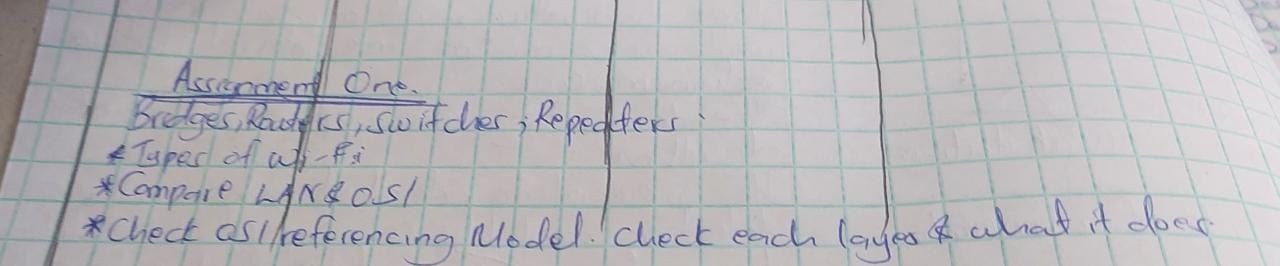 Assignment One.
Bridges, Routers, switches, Repeaters
* Types of wi-fi
* Compare LAN & OSI
* Check OSI referencing Model. Check each layer & what it does.